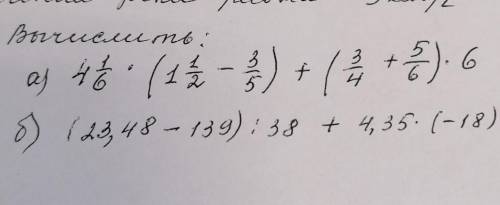 Вычислить:
а) 4 1/6 · (1 1/2 − 3/5) + (3/4 + 5/6) · 6
б) (23,48 − 139) : 38 + 4,35 · (−18)